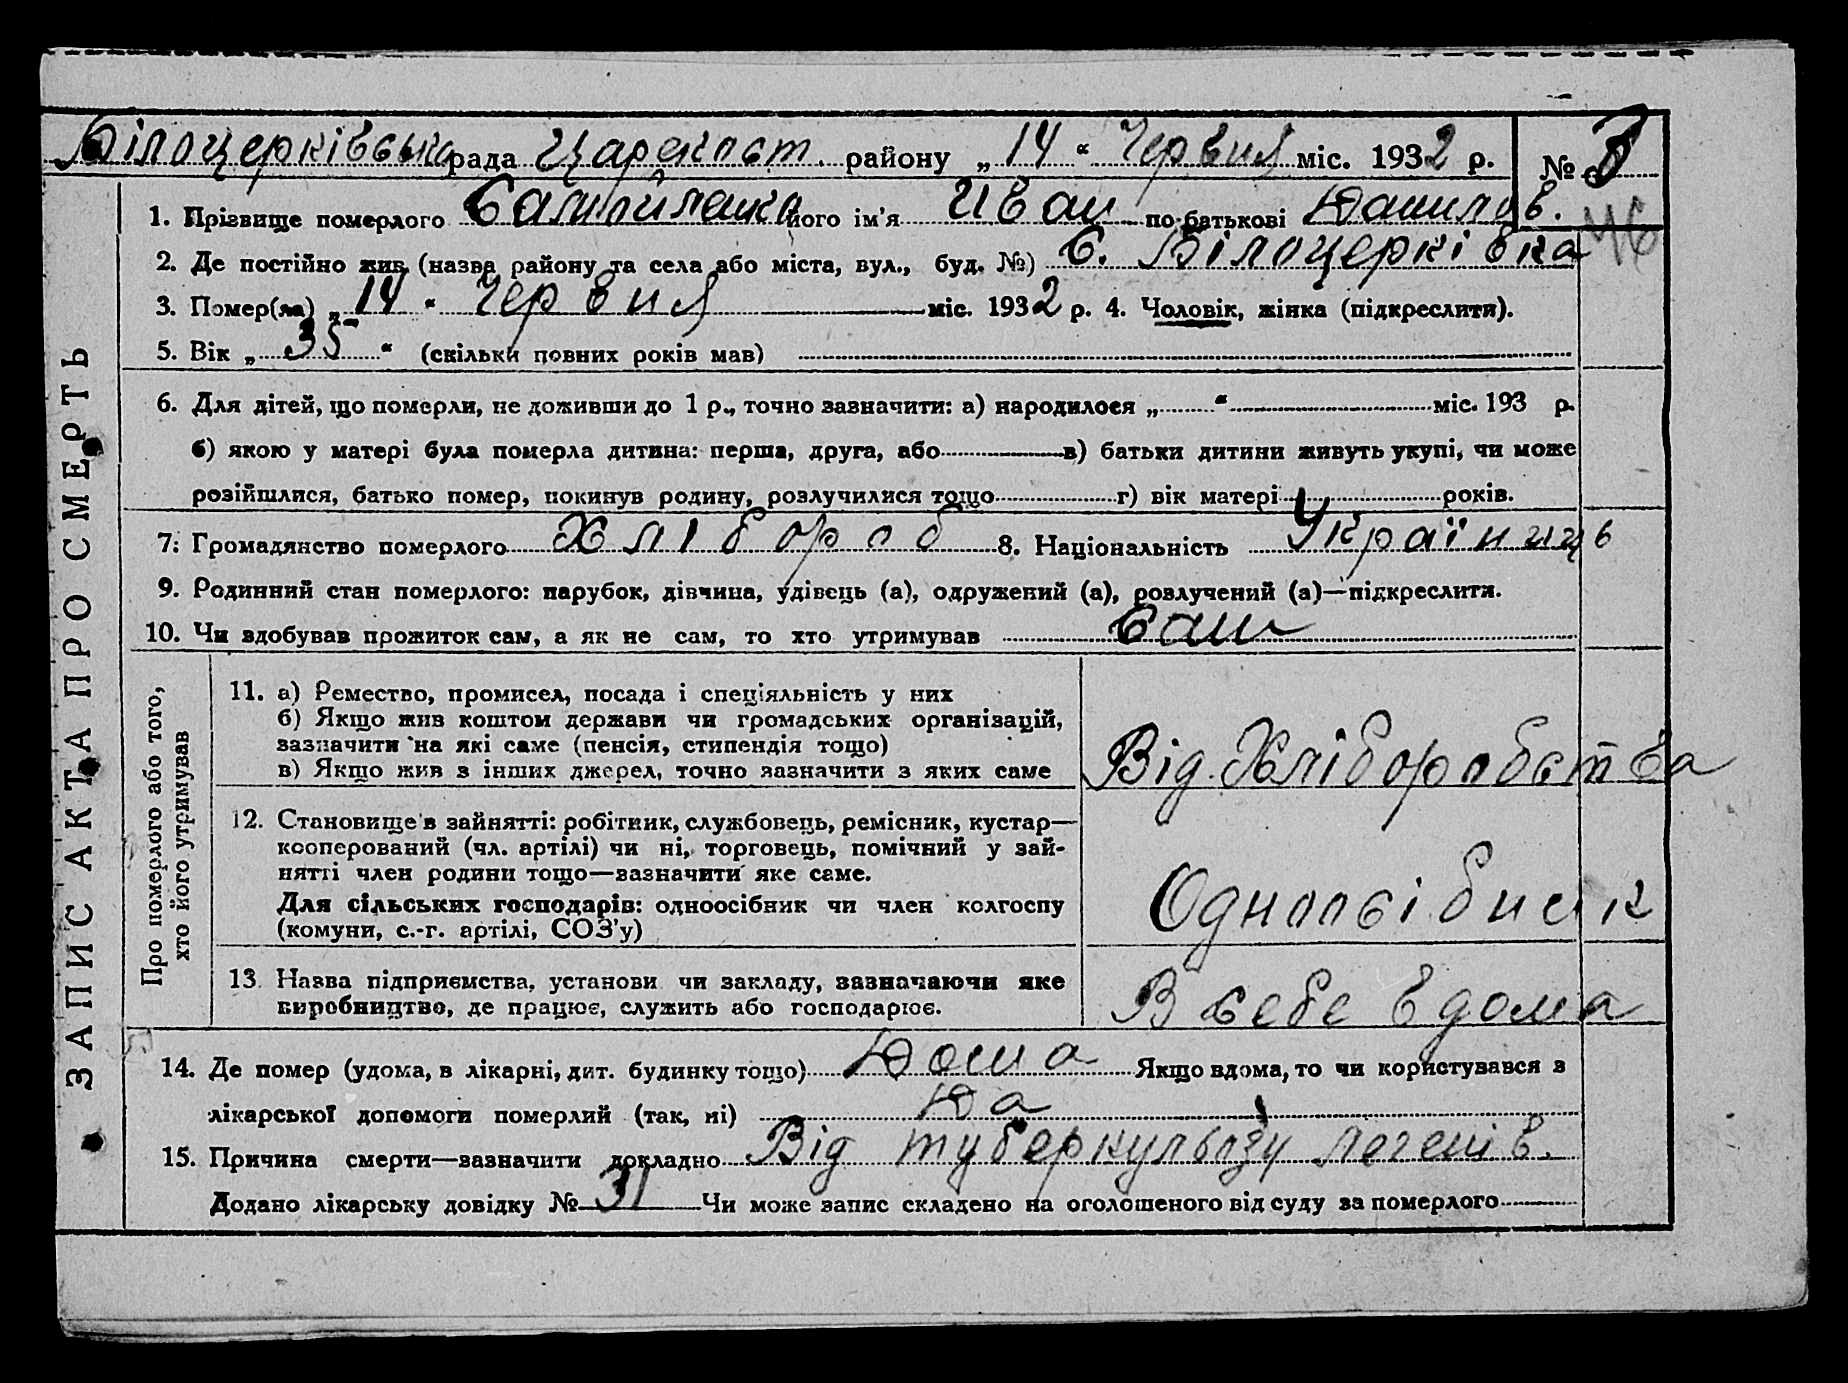 Білоцерківська рада Царекост. району „ 14 “ Червня міс. 1932 р. № 3
46
1. Прізвище померлого Самойленко його ім’я Иван по-батькові Данилов.
2. Де постійно жив (назва району та села або міста, вул., буд. №) С. Білоцерківка
3. Помер(ла) „ 14 “ Червня міс. 1932 р. 4. Чоловік, жінка (підкреслити).
5. Вік „ 35 “ (скільки повних років мав)
6. Для дітей, що померли, не доживши до 1 р., точно зазначити: а) народилося „ “ міс. 193 р.
б) якою у матері була померла дитина: перша, друга, або в) батьки дитини живуть укупі, чи може
розійшлися, батько помер, покинув родину, розлучилися тощо г) вік матері років.
7. Громадянство померлого Хлібороб 8. Національність Українців
9. Родинний стан померлого: парубок, дівчина, удівець (а), одружений (а), розлучений (а)—підкреслити.
10. Чи здобував прожиток сам, а як не сам, то хто утримував Сам
ЗАПИС АКТА ПРО СМЕРТЬ
Про померлого або того,
хто його утримував
11. а) Ремество, промисел, посада і спеціяльність у них
б) Якщо жив коштом держави чи громадських організацій,
зазначити на які саме (пенсія, стипендія тощо)
в) Якщо жив з інших джерел, точно зазначити з яких саме
Від Хліборобства
12. Становище в зайнятті: робітник, службовець, ремісник, кустар—
кооперований (чл. артілі) чи ні, торговець, помічний у зай-
нятті член родини тощо—зазначити яке саме.
Для сільських господарів: одноосібник чи член колгоспу
(комуни, с.-г. артілі, СОЗ’у)
Одноосібник
13. Назва підприємства, установи чи закладу, зазначаючи яке
виробництво, де працює, служить або господарює.
В себе вдома
14. Де помер (удома, в лікарні, дит. будинку тощо) Дома Якщо вдома, то чи користувався з
лікарської допомоги померлий (так, ні) Да
15. Причина смерти—зазначити докладно Від туберкульозу легенів.
Додано лікарську довідку № 31 Чи може запис складено на оголошеного від суду за померлого